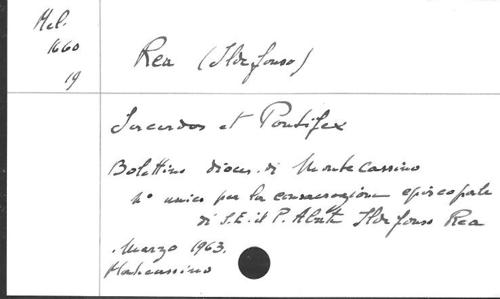 Mel.
1660
19
Rea (Ildefonso)
Sacerdos et Pontifex
Bolettino dioces. di Montecassino
n° unico per la consacrazione episcopale
di S.E. il P. Abate Ildefonso Rea
Marzo 1963.
Montecassino